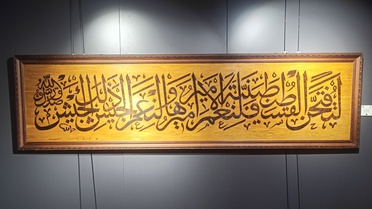 لتفتحن القسطنطينية فلنعم الأمير أميرها ولنعم الجيش ذلك الجيش